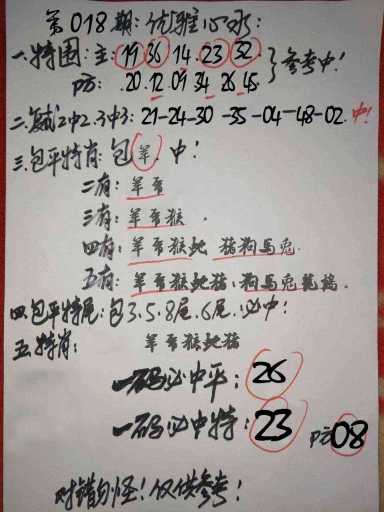 第018期:优雅心水:
一.特围:主:19 36 14 23 32 参考中!
防:20.12.09 34 26 45.
二.复试2中2.3中3:21-24-30-35-04-48-02.中!
三.包平特肖:包羊.中!
二肖:羊
三肖:羊 猴.
四肖:羊 猴蛇 猪狗马兔.
五肖:羊 猴蛇猪.狗马兔龙鸡.
四.包平特尾:包3.5.8尾.6尾.必中!
五.特肖:羊 猴蛇猪
一码必中平:26
一码必中特:23 防08
对错勿怪!仅供参考!